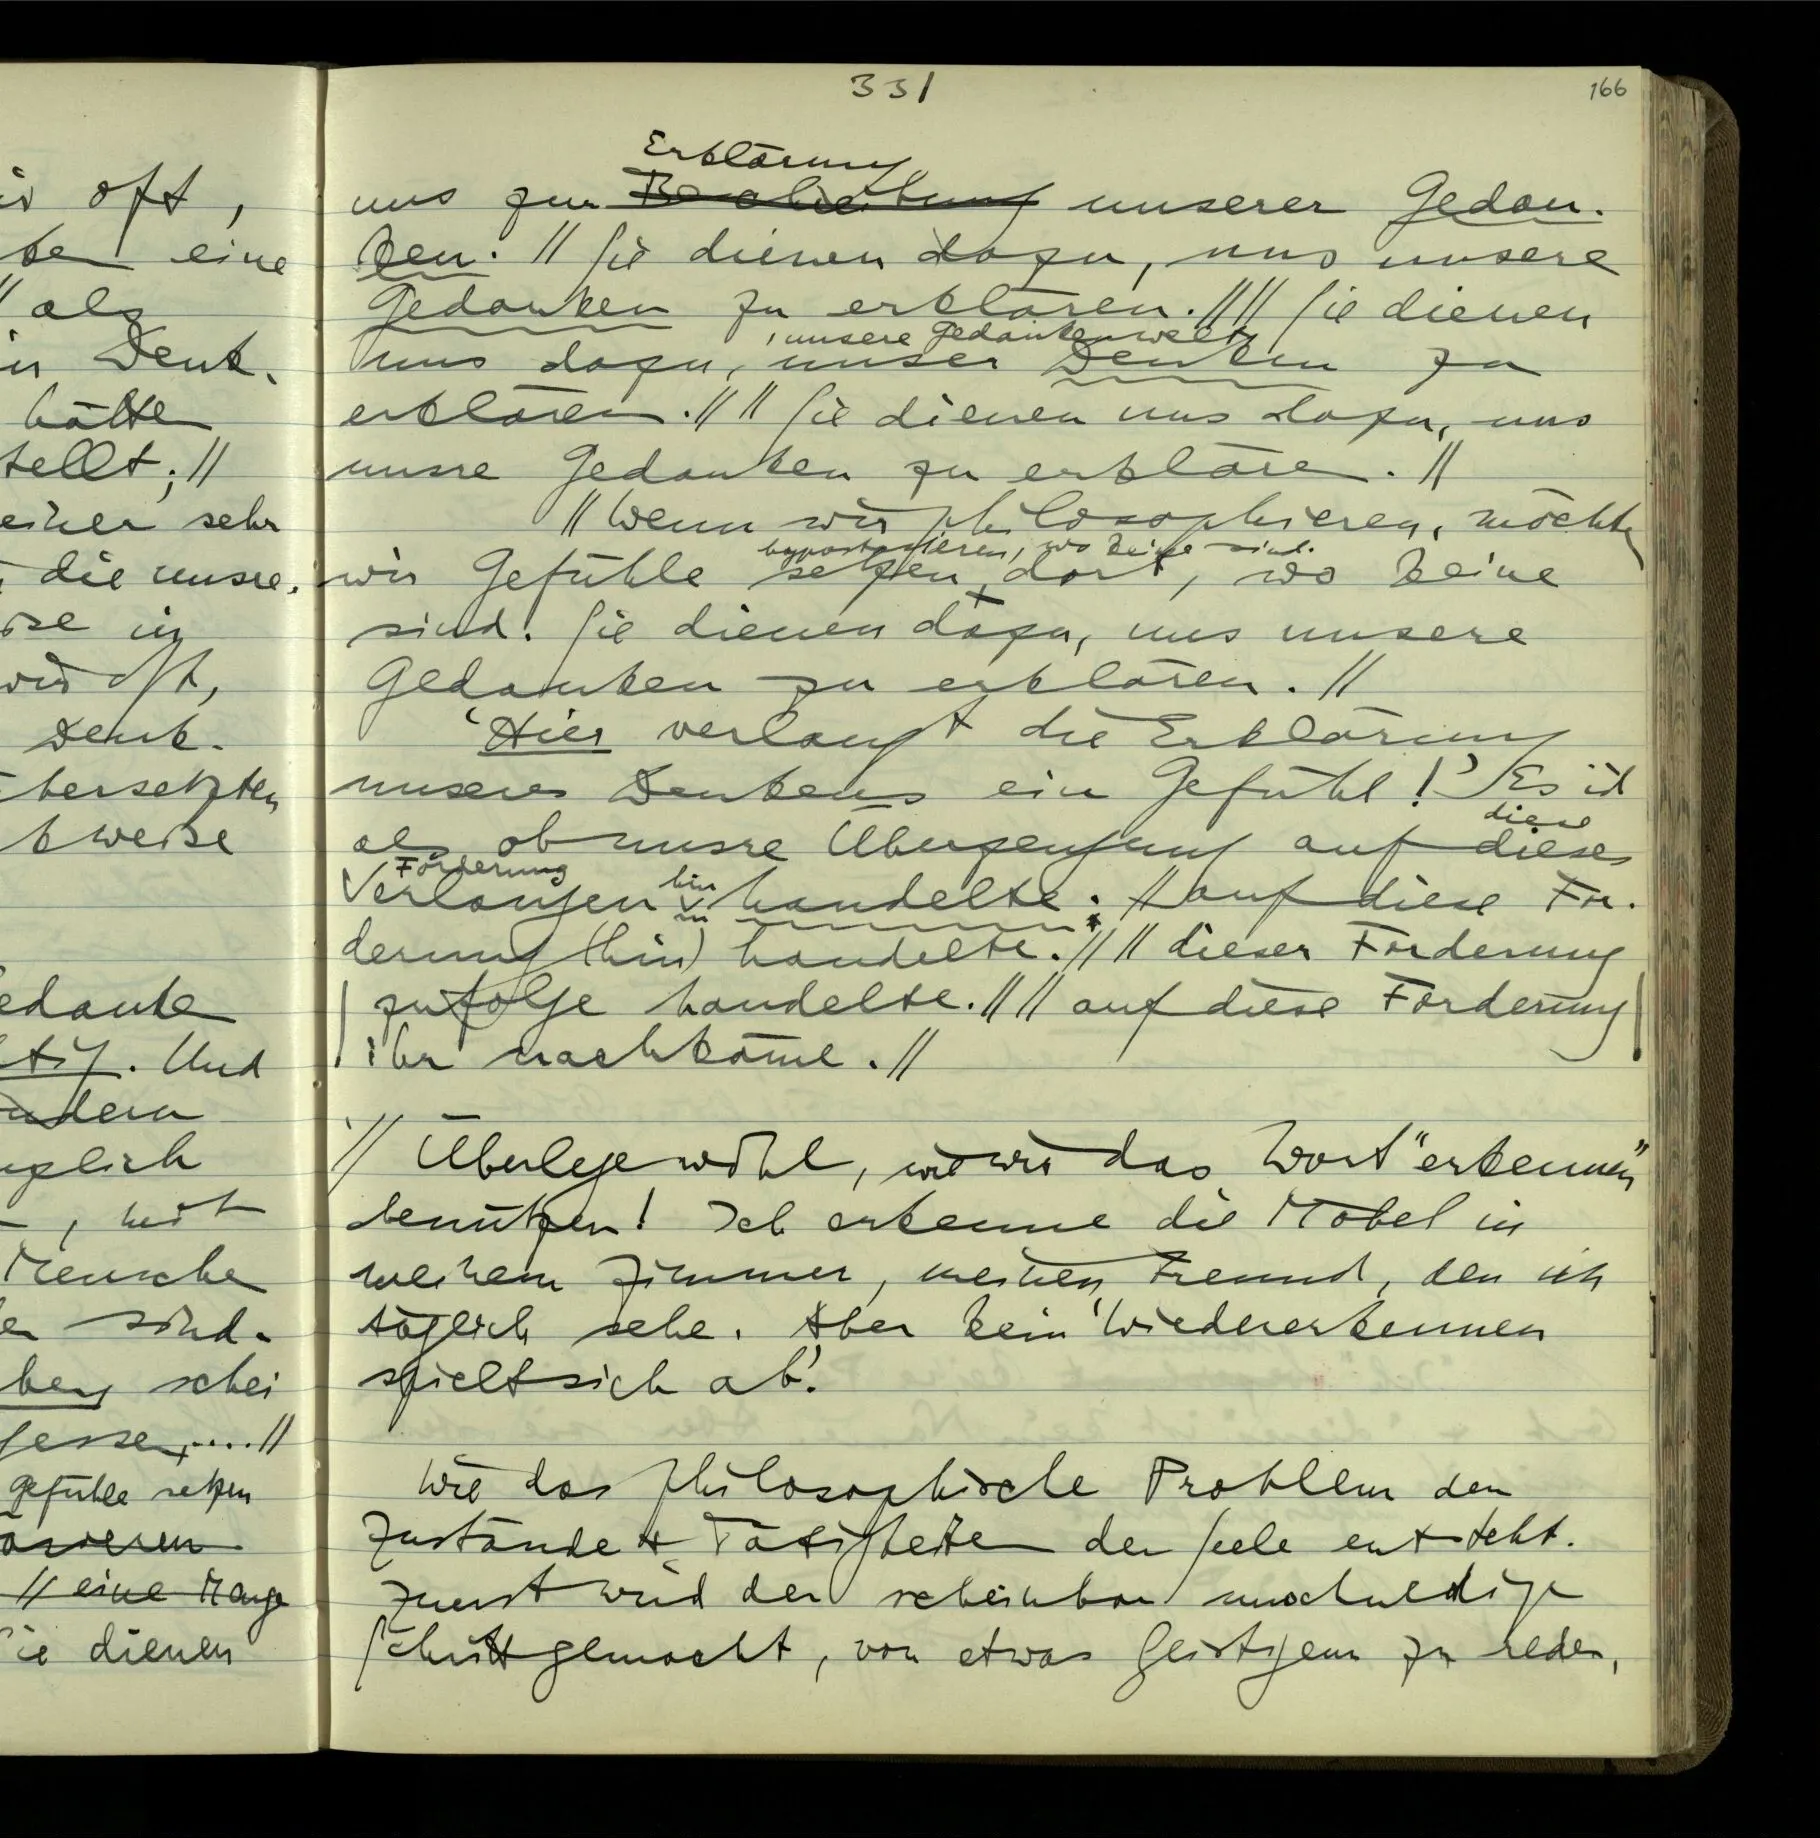 331
166
is oft,
ken eine
" als
in Denk-
hätte
tellt; //
einer sehr
die unsre
ise in
wir oft,
Denk-
übersetzten
kweise
edanke
htig. Und
ndern
uglich
, mit
Mensche
en sind-
ben schei
gessen, .... //
Gefühle setzen
// eine Menge
Sie dienen
Erklärung
uns zur Beschreibung unserer Gedan-
ken. // Sie dienen dazu, uns unsere
Gedanken zu erklären. // // Sie dienen
, unsere Gedankenwelt,
uns dazu, unser Denken zu
erklären. // // Sie dienen uns dazu, uns
unsre Gedanken zu erkläre. //
// Wenn wir philosophieren, möchten
hypostasieren, wo keine sind.
wir Gefühle setzen, dort, wo keine
sind. Sie dienen dazu, uns unsere
Gedanken zu erklären. //
'Hier verlangt die Erklärung
unseres Denkens ein Gefühl!' Es ist
diese
als ob unsre Überzeugung auf dieses
Forderung hin
Verlangen handelte. // auf diese For-
derung (hin) handelte. // // dieser Forderung
zufolge handelte. // // auf diese Forderung
ihr nachkäme. //
// Überlege wohl, wie wir das Wort "erkennen"
benützen! Ich erkenne die Möbel in
meinem Zimmer, meinen Freund, den ich
täglich sehe. Aber kein 'Wiedererkennen
spielt sich ab'.
Wie das philosophische Problem der
Zustände & Tätigkeiten der Seele entsteht.
Zuerst wird der scheinbar unschuldige
Schritt gemacht, von etwas Geistigem zu reden,